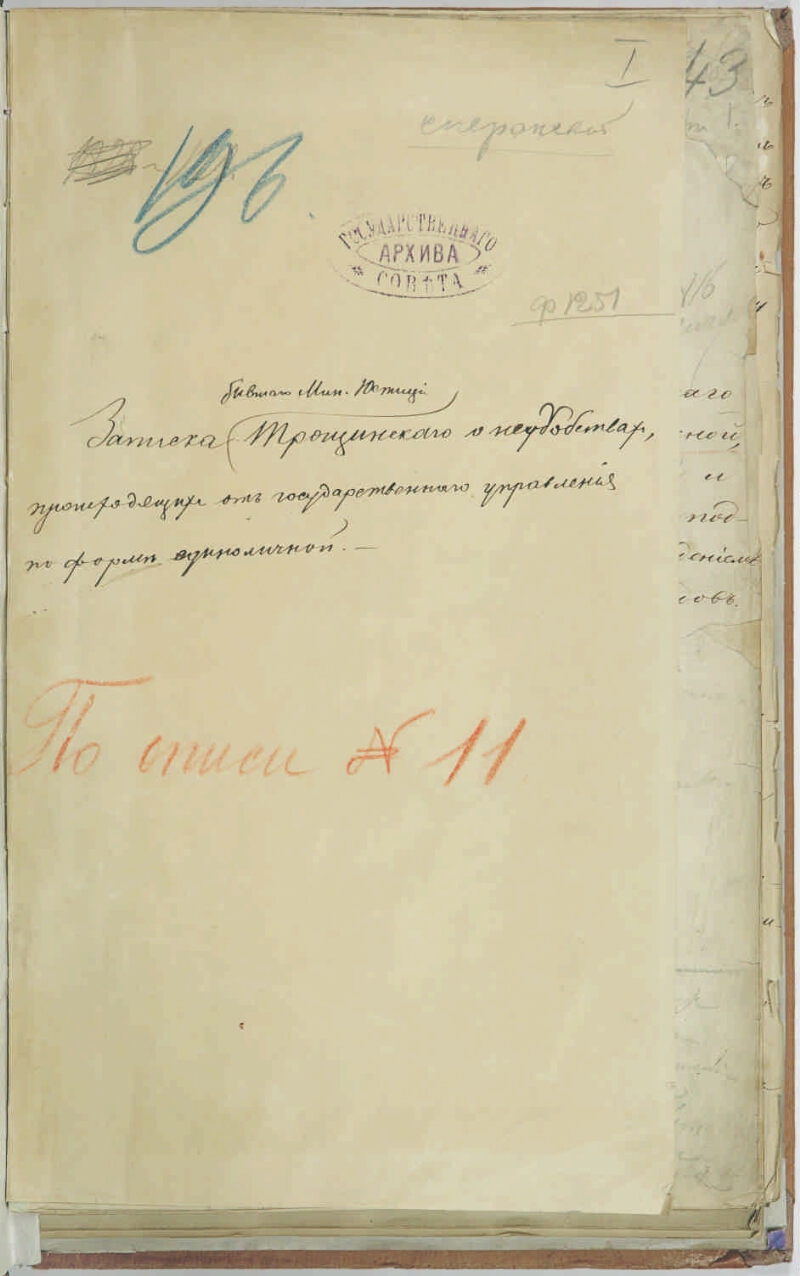 I
43
сперанский
196.
ГОСУДАРСТВЕННАГО
АРХИВА
СОВѢТА
ф 1251
бывшаго Мин. Юстиціи
Записка Трощинскаго о неудобствах,
происходящих отъ государственнаго управленія
по формѣ единоличной. —
аго
ной,
и
под-
деніемъ
совъ.
По описи № 11